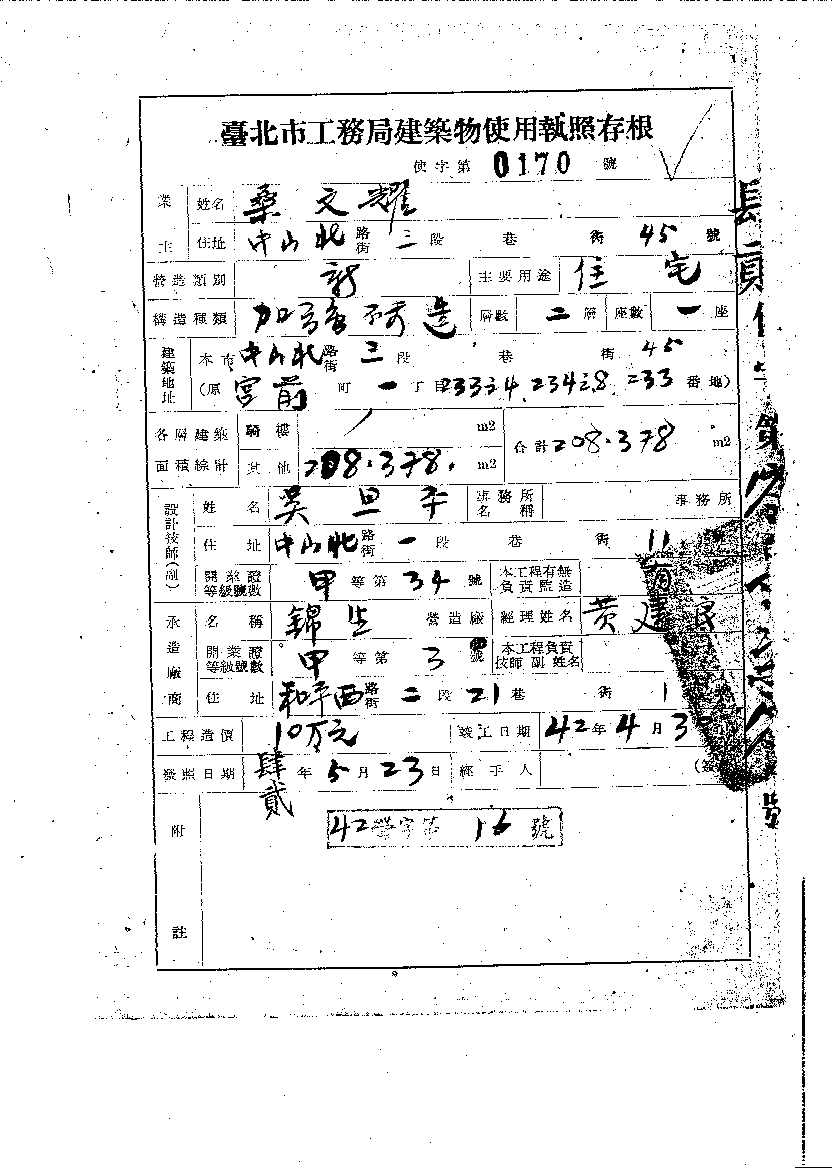 臺北市工務局建築物使用執照存根
使字第 0170 號
業主 姓名 桑文耀
住址 中山北路街 三段 巷 街 45 號
營造類別 新 主要用途 住宅
構造種類 加強磚造 層數 二層 座數 一座
建築地址 本市 中山北路街 三段 巷 街 45
(原 宮前 町 一丁目 233之4, 234之8, 233 番地)
各層建築面積總計 騎樓 m2 合計 208.378 m2
其他 208.378. m2
設計技師(副) 姓名 事務所名稱 事務所
住址 中山北路街 一段 巷 街 11
開業證等級號數 甲等第 34 號 本工程有無負責監造 有
承造廠商 名稱 錦生 營造廠 經理姓名 黄建
開業證等級號數 甲等第 3 號 本工程負責技師副姓名
住址 和平西路街 二段 21巷 街 1
工程造價 10万元 竣工日期 42年4月30
發照日期 肆貳年5月23日 經手人
附註 42營字第 16 號